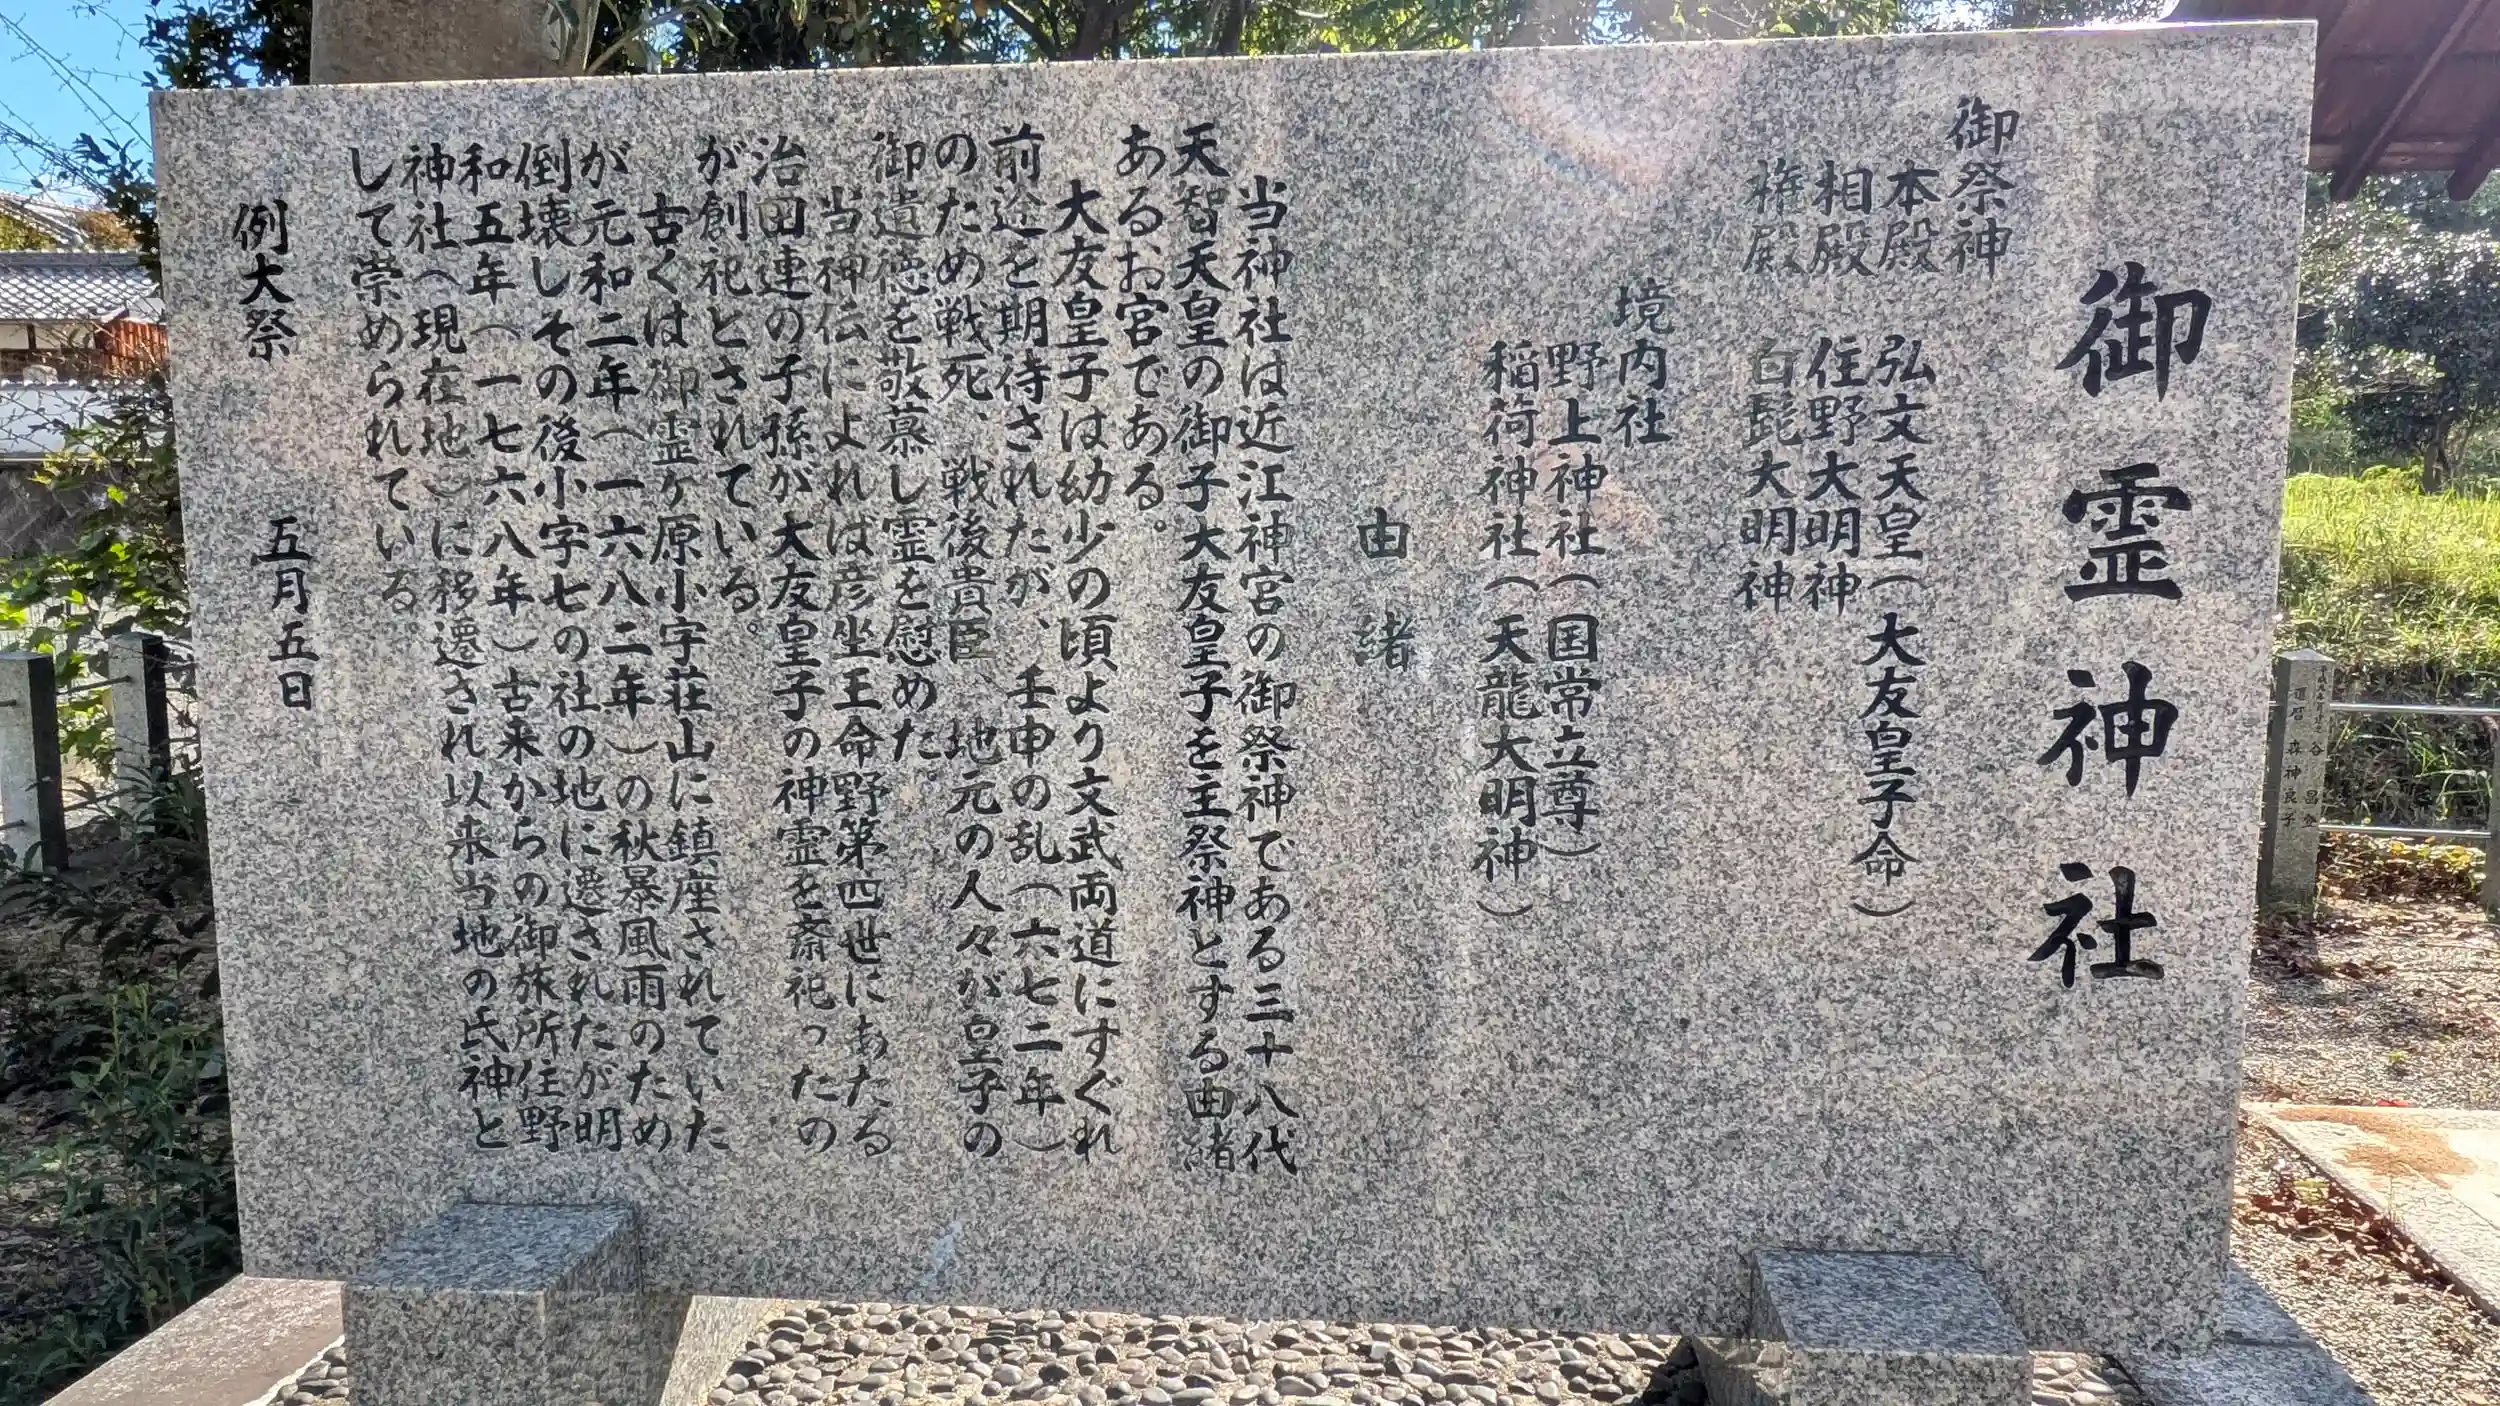 御霊神社
御祭神
本殿 弘文天皇(大友皇子命)
相殿 住野大明神
権殿 白髭大明神
境内社
野上神社(国常立尊)
稲荷神社(天龍大明神)
由緒
当神社は近江神宮の御祭神である三十八代
天智天皇の御子大友皇子を主祭神とする由緒
あるお宮である。
大友皇子は幼少の頃より文武両道にすぐれ
前途を期待されたが、壬申の乱(六七二年)
のため戦死、戦後貴臣、地元の人々が皇子の
御遺徳を敬慕し霊を慰めた。
当神伝によれば彦坐王命野第四世にあたる
治田連の子孫が大友皇子の神霊を斎祀ったの
が創祀とされている。
古くは御霊ヶ原小字荘山に鎮座されていた
が元和二年(一六八二年)の秋暴風雨のため
倒壊しその後小字七の社の地に遷されたが明
和五年(一七六八年)古来からの御旅所住野
神社(現在地)に移遷され以来当地の氏神と
して崇められている。
例大祭 五月五日
谷
還暦 森神良子